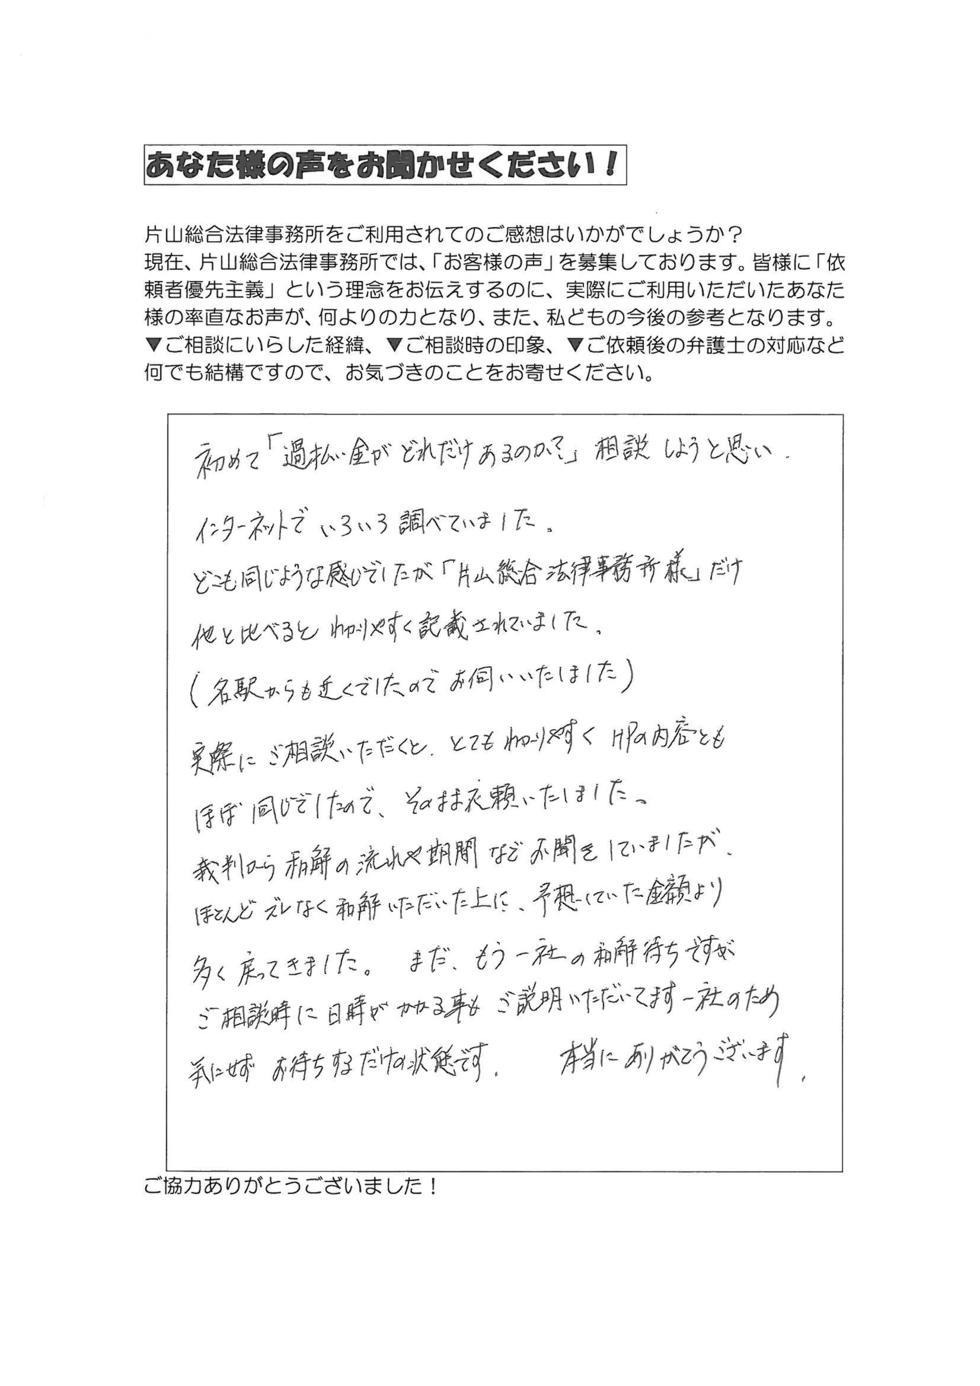 あなた様の声をお聞かせください！
片山総合法律事務所をご利用されてのご感想はいかがでしょうか？
現在、片山総合法律事務所では、「お客様の声」を募集しております。皆様に「依
頼者優先主義」という理念をお伝えするのに、実際にご利用いただいたあなた
様の率直なお声が、何よりの力となり、また、私どもの今後の参考となります。
▼ご相談にいらした経緯、▼ご相談時の印象、▼ご依頼後の弁護士の対応など
何でも結構ですので、お気づきのことをお寄せください。
初めて「過払い金がどれだけあるのか？」相談しようと思い、
インターネットでいろいろ調べていました。
どこも同じような感じでしたが「片山総合法律事務所様」だけ
他と比べるとわかりやすく記載されていました。
(名駅からも近くでしたのでお伺いいたしました)
実際にご相談いただくと、とてもわかりやすくHPの内容とも
ほぼ同じでしたので、そのまま依頼いたしました。
裁判から和解の流れや期間などお聞きしていましたが、
ほとんどズレなく和解いただいた上に、予想していた金額より
多く戻ってきました。まだ、もう一社の和解待ちですが
ご相談時に日時がかかる事もご説明いただいてます一社のため
気にせずお待ちするだけの状態です。 本当にありがとうございます。
ご協力ありがとうございました！